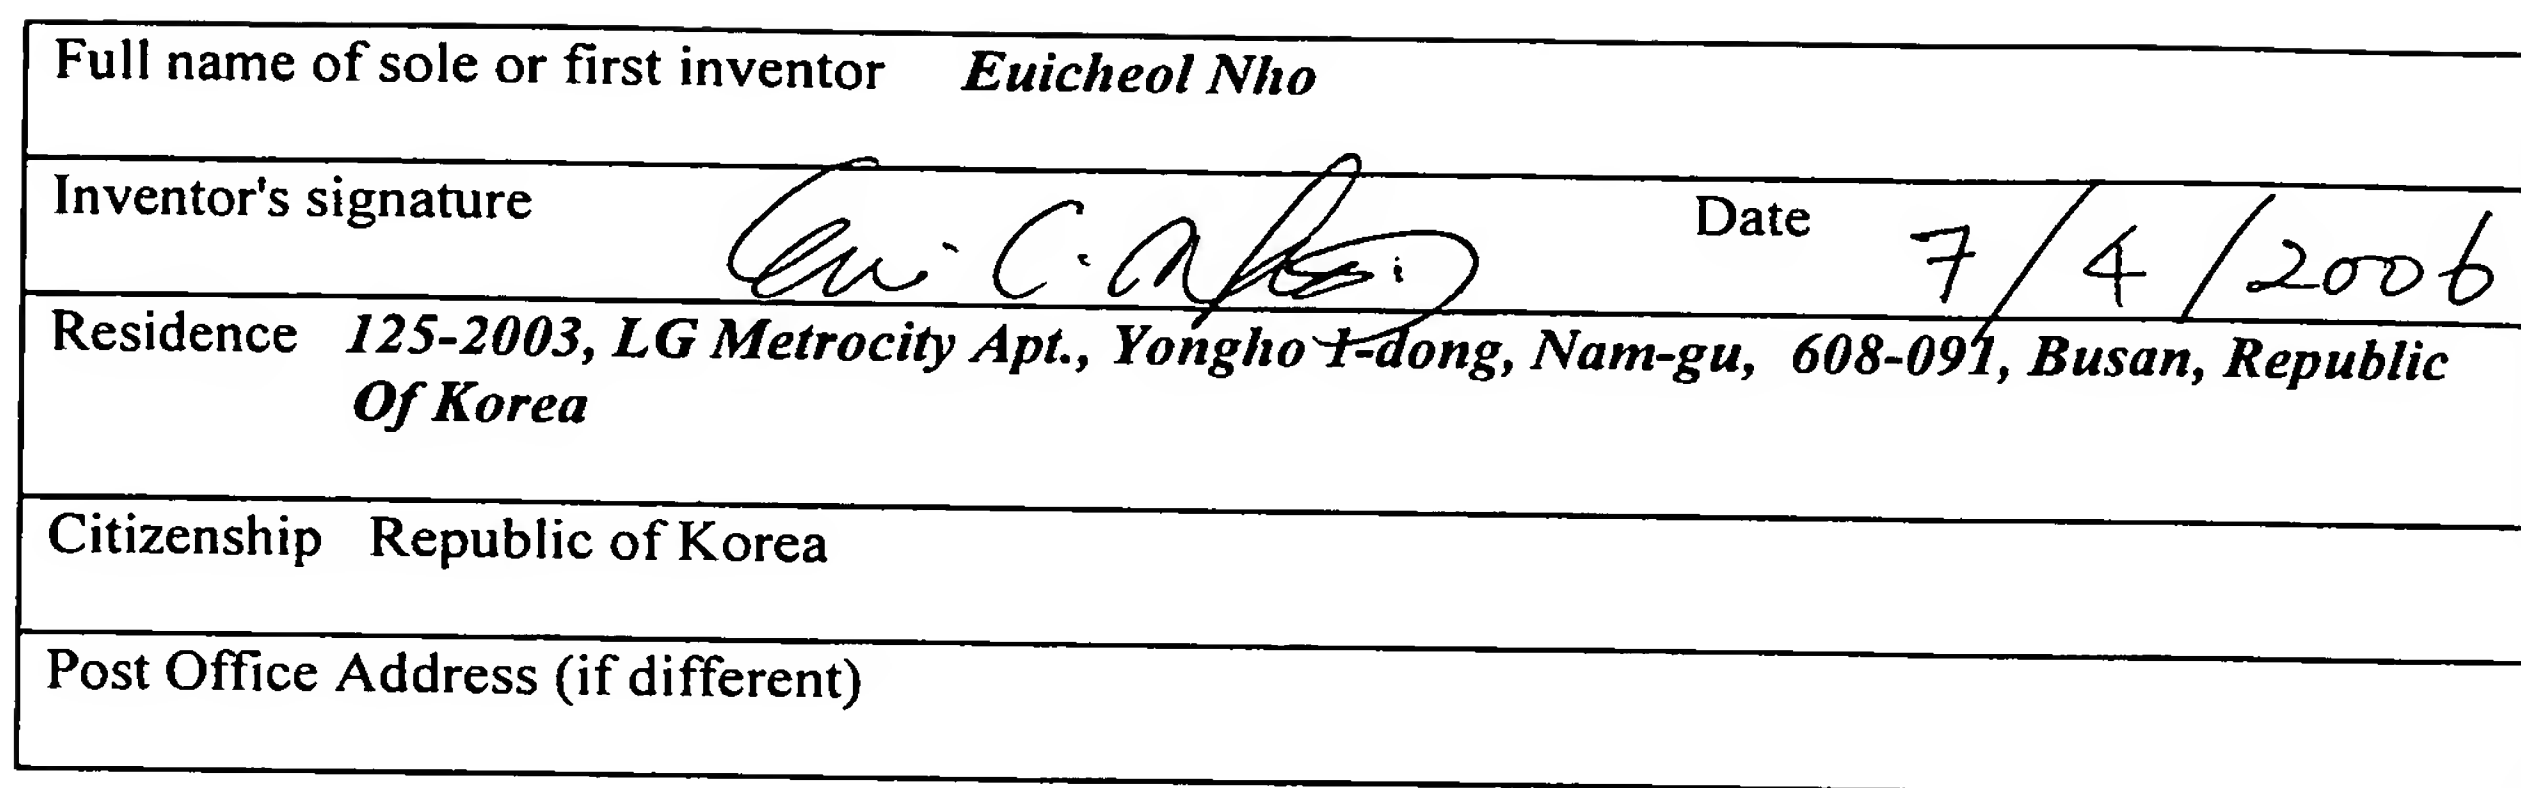 Full name of sole or first inventor Euicheol Nho
Inventor's signature Eui C. Nho Date 7/4/2006
Residence 125-2003, LG Metrocity Apt., Yongho 1-dong, Nam-gu, 608-091, Busan, Republic
Of Korea
Citizenship Republic of Korea
Post Office Address (if different)